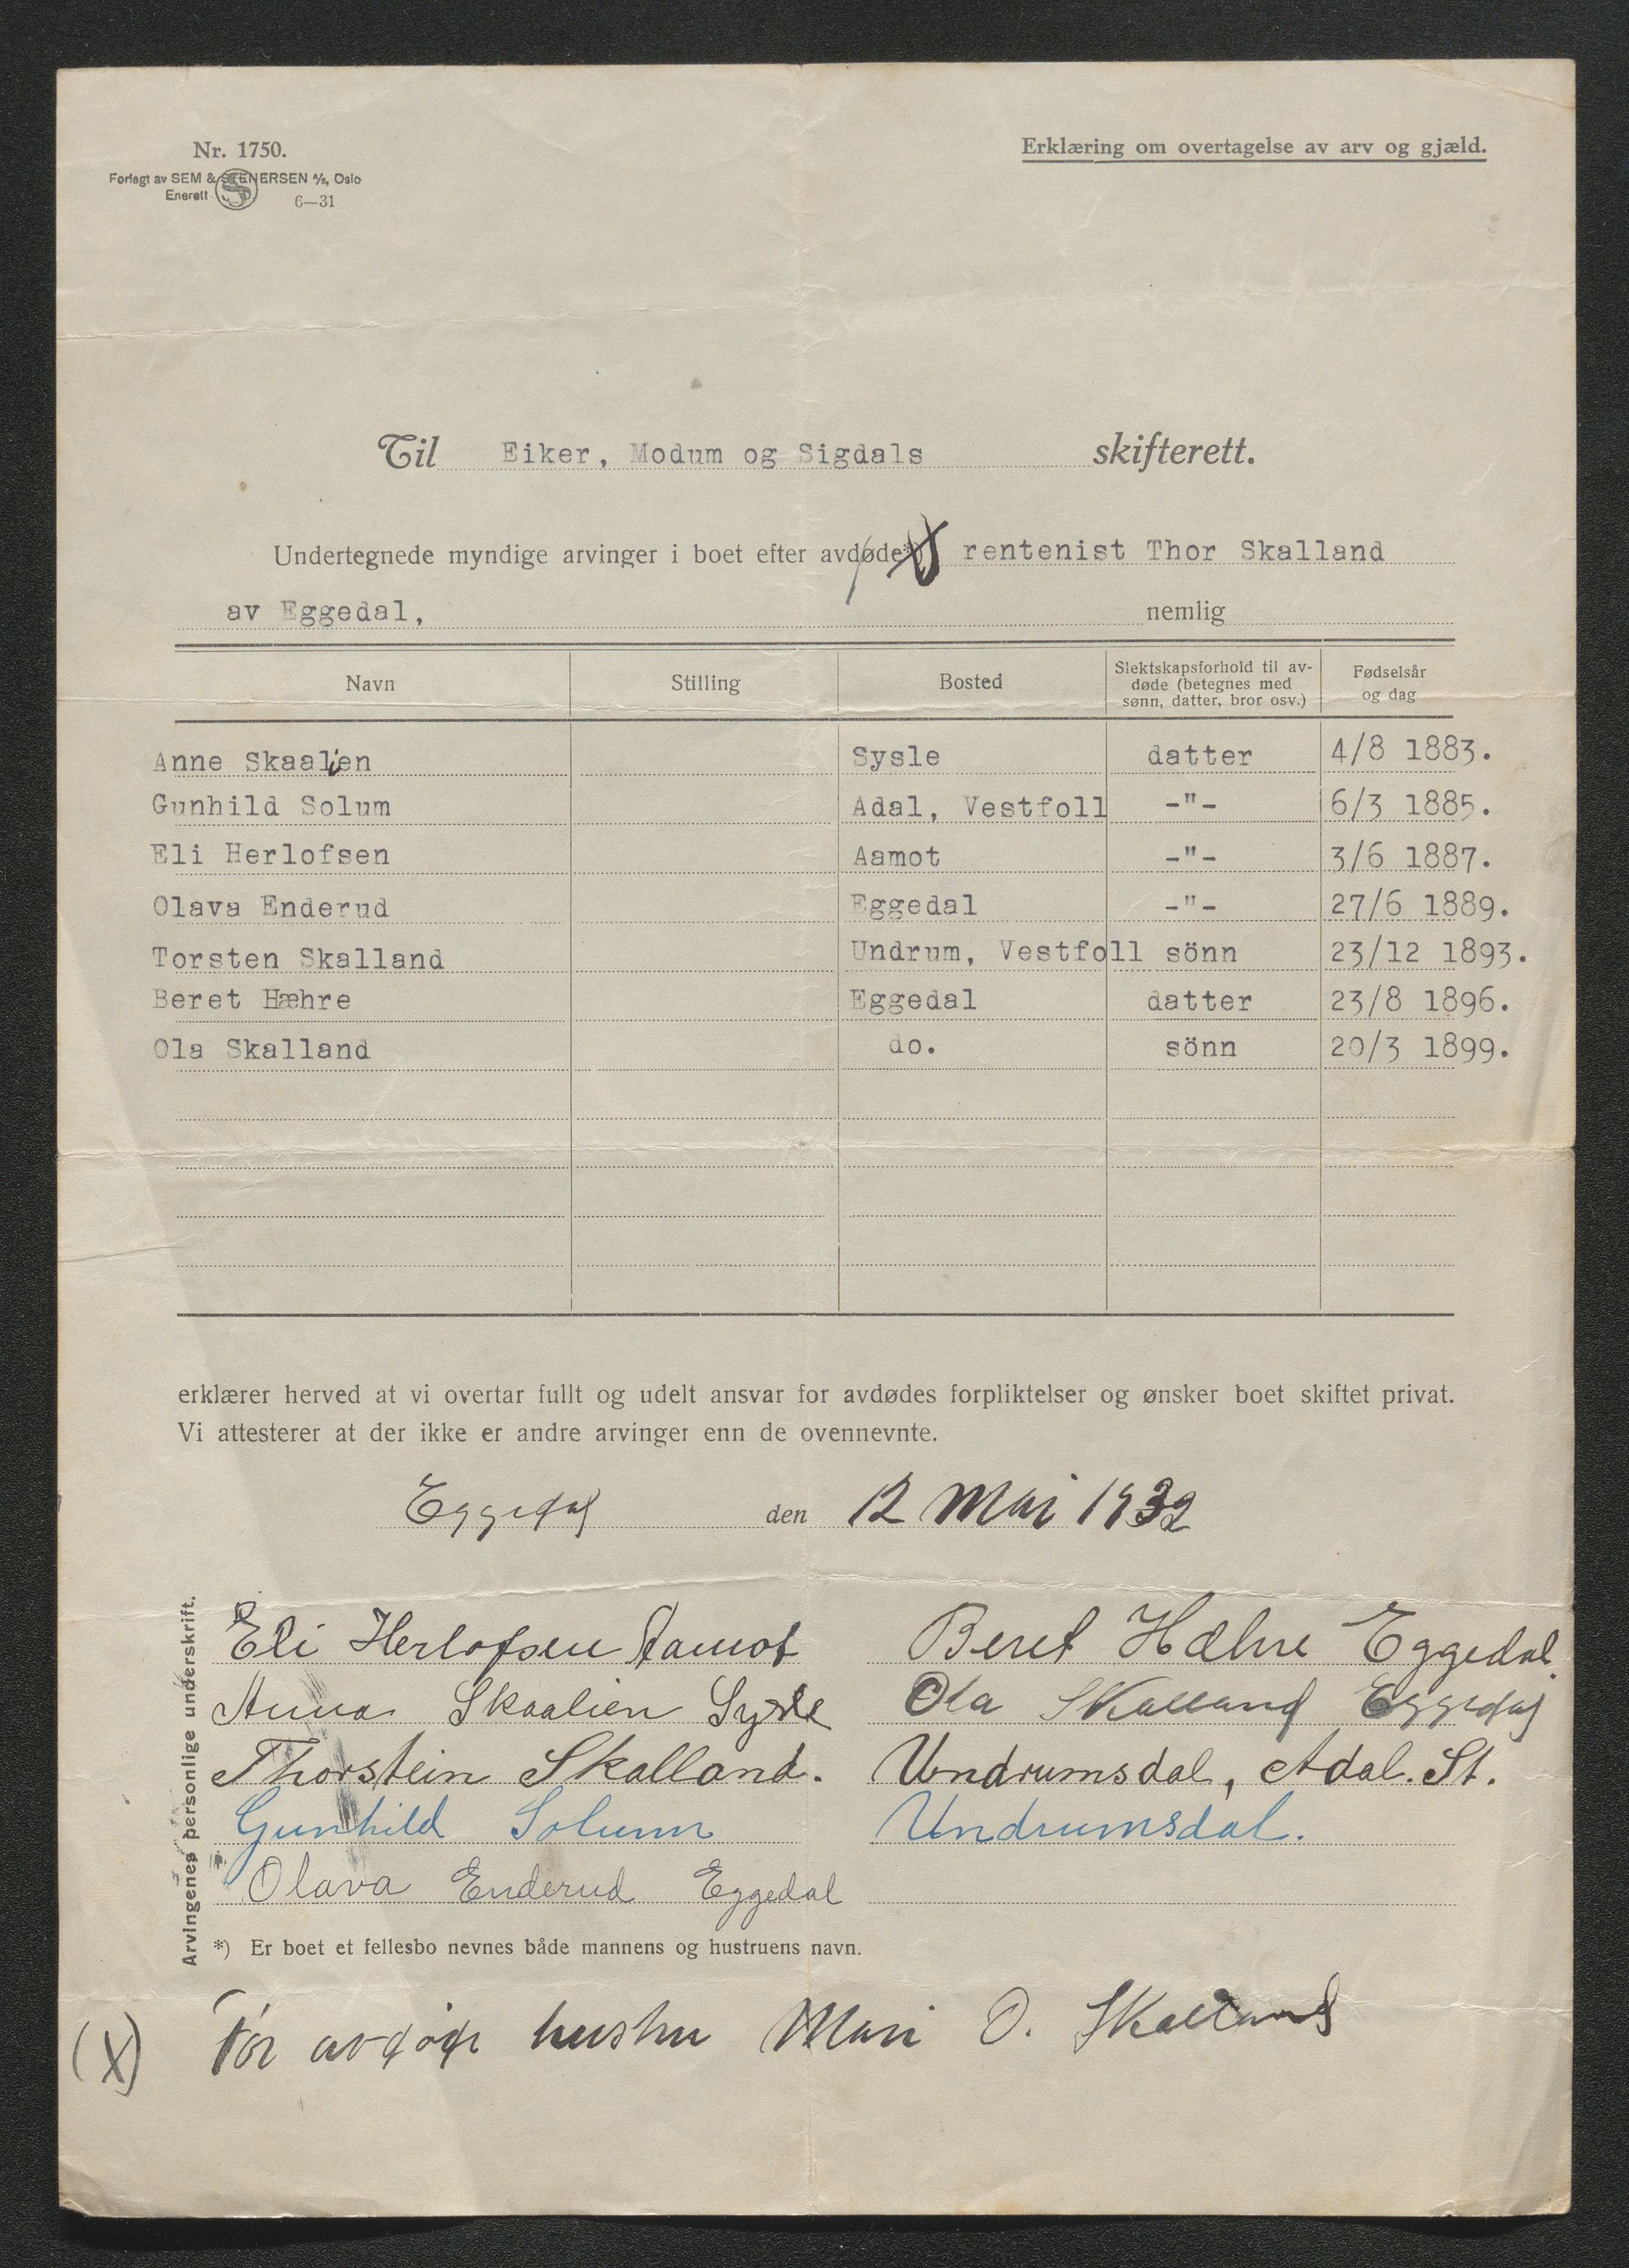 Nr. 1750.
Erklæring om overtagelse av arv og gjæld.
Forlagt av SEM & STENERSEN A/S, Oslo
Enerett 6—31
Til Eiker, Modum og Sigdals skifterett.
Undertegnede myndige arvinger i boet efter avdøde*) rentenist Thor Skalland
av Eggedal, nemlig
Navn Stilling Bosted Slektskapsforhold til av-
døde (betegnes med
sønn, datter, bror osv.) Fødselsår
og dag
Anne Skaalien Sysle datter 4/8 1883.
Gunhild Solum Adal, Vestfoll -"- 6/3 1885.
Eli Herlofsen Aamot -"- 3/6 1887.
Olava Enderud Eggedal -"- 27/6 1889.
Torsten Skalland Undrum, Vestfoll sönn 23/12 1893.
Beret Hæhre Eggedal datter 23/8 1896.
Ola Skalland do. sönn 20/3 1899.
erklærer herved at vi overtar fullt og udelt ansvar for avdødes forpliktelser og ønsker boet skiftet privat.
Vi attesterer at der ikke er andre arvinger enn de ovennevnte.
Eggedal den 12 Mai 1932
Arvingenes personlige underskrift.
Eli Herlofsen Aamot Beret Hæhre Eggedal.
Anna Skaalien Sysle Ola Skalland Eggedal
Thorstein Skalland. Undrumsdal, Adal. St.
Gunhild Solum Undrumsdal.
Olava Enderud Eggedal
*) Er boet et fellesbo nevnes både mannens og hustruens navn.
(X) før avdøde hustru Mari O. Skalland